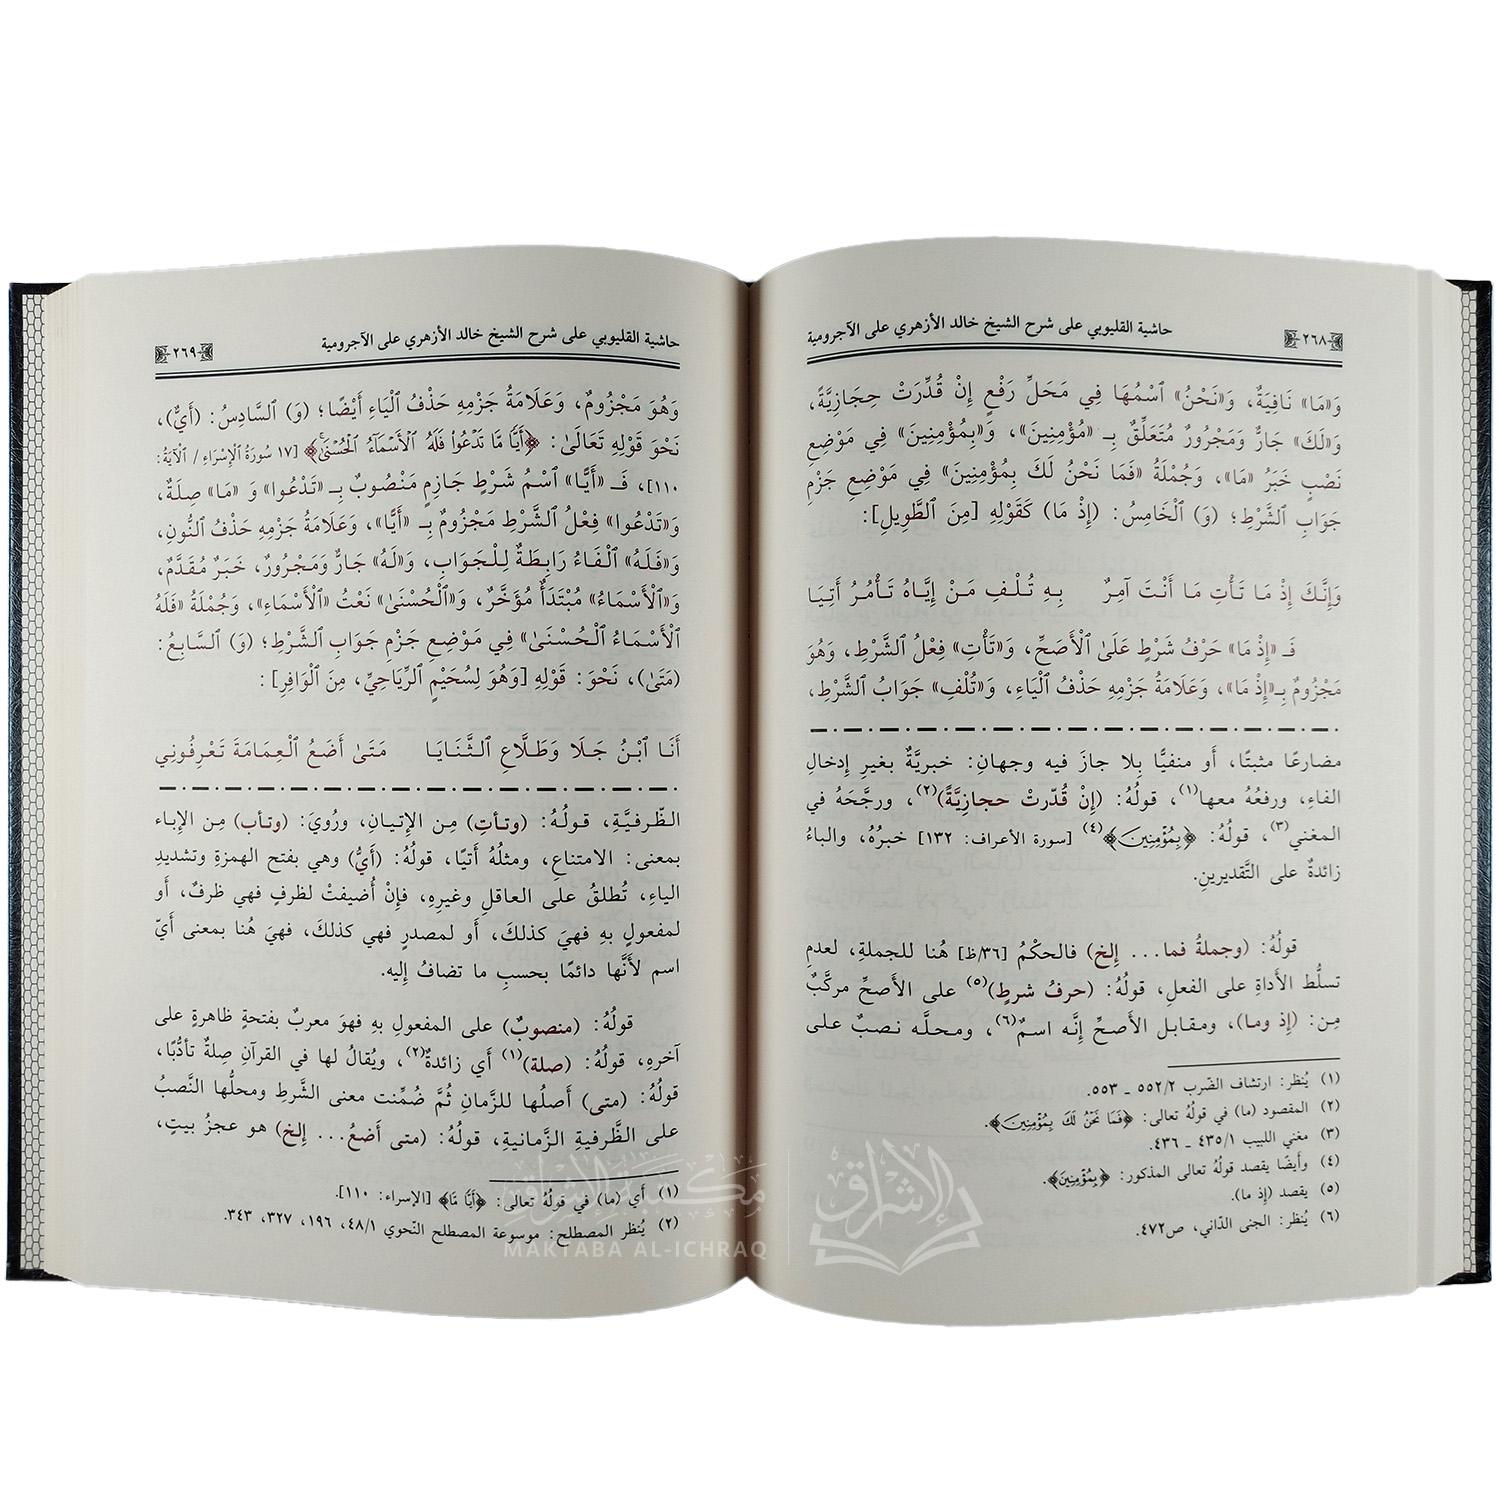 حاشية القليوبي على شرح الشيخ خالد الأزهري على الآجرومية
٢٦٨
وَ«مَا» نَافِيَةٌ، وَ«نَحْنُ» ٱسْمُهَا فِي مَحَلِّ رَفْعٍ إِنْ قُدِّرَتْ حِجَازِيَّةً،
وَ«لَكَ» جَارٌّ وَمَجْرُورٌ مُتَعَلِّقٌ بِـ «مُؤْمِنِينَ»، وَ«بِمُؤْمِنِينَ» فِي مَوْضِعِ
نَصْبٍ خَبَرُ «مَا»، وَجُمْلَةُ «فَمَا نَحْنُ لَكَ بِمُؤْمِنِينَ» فِي مَوْضِعِ جَزْمِ
جَوَابِ ٱلشَّرْطِ؛ (وَ) ٱلْخَامِسُ: (إِذْ مَا) كَقَوْلِهِ [مِنَ ٱلطَّوِيلِ]:
وَإِنَّكَ إِذْ مَا تَأْتِ مَا أَنْتَ آمِرٌ بِهِ تُلْفِ مَنْ إِيَّاهُ تَأْمُرُ آتِيَا
فَـ «إِذْ مَا» حَرْفُ شَرْطٍ عَلَىٰ ٱلْأَصَحِّ، وَ«تَأْتِ» فِعْلُ ٱلشَّرْطِ، وَهُوَ
مَجْزُومٌ بِـ«إِذْ مَا»، وَعَلَامَةُ جَزْمِهِ حَذْفُ ٱلْيَاءِ، وَ«تُلْفِ» جَوَابُ ٱلشَّرْطِ،
مضارعًا مثبتًا، أو منفيًّا بِلا جازَ فيه وجهانِ: خبريَّةٌ بغيرِ إدخالِ
الفاءِ، ورفعُهُ معها(١)، قولُهُ: (إنْ قُدّرتْ حجازيَّةً)(٢)، ورجَّحَهُ في
المغني(٣)، قولُهُ: ﴿بِمُؤْمِنِينَ﴾(٤) [سورة الأعراف: ١٣٢] خبرُهُ، والباءُ
زائدةٌ على التَّقديرينِ.
قولُهُ: (وجملةُ فما... إلخ) فالحكْمُ [٣٦/ظ] هُنا للجملةِ، لعدمِ
تسلُّط الأداةِ على الفعلِ، قولُهُ: (حرفُ شرطٍ)(٥) على الأصحِّ مركَّبٌ
مِن: (إذ وما)، ومقابل الأصحِّ إنَّه اسمٌ(٦)، ومحلَّه نصبٌ على
(١) يُنظر: ارتشاف الضّرب ٥٥٢/٢ ـ ٥٥٣.
(٢) المقصود (ما) في قولُهُ تعالى: ﴿فَمَا نَحْنُ لَكَ بِمُؤْمِنِينَ﴾.
(٣) مغني اللبيب ٤٣٥/١ ـ ٤٣٦.
(٤) وأيضًا يقصد قولُهُ تعالى المذكور: ﴿بِمُؤْمِنِينَ﴾.
(٥) يقصد (إذ ما).
(٦) يُنظر: الجنى الدّاني، ص٤٧٢.
حاشية القليوبي على شرح الشيخ خالد الأزهري على الآجرومية
٢٦٩
وَهُوَ مَجْزُومٌ، وَعَلَامَةُ جَزْمِهِ حَذْفُ ٱلْيَاءِ أَيْضًا؛ (وَ) ٱلسَّادِسُ: (أَيٌّ)،
نَحْوَ قَوْلِهِ تَعَالَىٰ: ﴿أَيًّا مَّا تَدْعُوا۟ فَلَهُ ٱلْأَسْمَآءُ ٱلْحُسْنَىٰ﴾ [١٧ سُورَةُ ٱلْإِسْرَاءِ / ٱلْآيَةُ:
١١٠]، فَـ «أَيًّا» ٱسْمُ شَرْطٍ جَازِمٍ مَنْصُوبٌ بِـ «تَدْعُوا» وَ «مَا» صِلَةٌ،
وَ«تَدْعُوا» فِعْلُ ٱلشَّرْطِ مَجْزُومٌ بِـ «أَيًّا»، وَعَلَامَةُ جَزْمِهِ حَذْفُ ٱلنُّونِ،
وَ«فَلَهُ» ٱلْفَاءُ رَابِطَةٌ لِلْجَوَابِ، وَ«لَهُ» جَارٌّ وَمَجْرُورٌ، خَبَرٌ مُقَدَّمٌ،
وَ«ٱلْأَسْمَاءُ» مُبْتَدَأٌ مُؤَخَّرٌ، وَ«ٱلْحُسْنَىٰ» نَعْتُ «ٱلْأَسْمَاءِ»، وَجُمْلَةُ «فَلَهُ
ٱلْأَسْمَاءُ ٱلْحُسْنَىٰ» فِي مَوْضِعِ جَزْمِ جَوَابِ ٱلشَّرْطِ؛ (وَ) ٱلسَّابِعُ:
(مَتَىٰ)، نَحْوَ: قَوْلِهِ [وَهُوَ لِسُحَيْمٍ ٱلرِّيَاحِيِّ، مِنَ ٱلْوَافِرِ]:
أَنَا ٱبْنُ جَلَا وَطَلَّاعِ ٱلثَّنَايَا مَتَىٰ أَضَعُ ٱلْعِمَامَةَ تَعْرِفُونِي
الظّرفيَّةِ، قولُهُ: (وتأتِ) مِن الإتيانِ، ورُويَ: (وتأب) مِن الإباء
بمعنى: الامتناعِ، ومثلُهُ أتيًا، قولُهُ: (أَيُّ) وهي بفتح الهمزةِ وتشديدِ
الياءِ، تُطلقُ على العاقلِ وغيرِهِ، فإنْ أُضيفتْ لظرفٍ فهي ظرفٌ، أَو
لمفعولٍ بهِ فهيَ كذلكَ، أَو لمصدرٍ فهي كذلكَ، فهيَ هُنا بمعنى أَيّ
اسم لأنَّها دائمًا بحسبِ ما تضافُ إليه.
قولُهُ: (منصوبٌ) على المفعولِ بهِ فهوَ معربٌ بفتحةٍ ظاهرةٍ على
آخرهِ، قولُهُ: (صلة)(١) أَي زائدةٌ(٢)، ويُقالُ لها في القرآنِ صِلةٌ تأدُّبًا،
قولُهُ: (متى) أصلُها للزَّمانِ ثمَّ ضُمِّنت معنى الشَّرطِ ومحلُّها النَّصبُ
على الظَّرفيةِ الزَّمانيةِ، قولُهُ: (متى أضعُ... إلخ) هو عجزُ بيتٍ،
(١) أي (ما) في قولُهُ تعالى: ﴿أَيًّا مَّا﴾ [الإسراء: ١١٠].
(٢) يُنظر المصطلح: موسوعة المصطلح النّحوي ٤٨/١، ١٩٦، ٣٢٧، ٣٤٣.
مكتبة الإشراق
MAKTABA AL-ICHRAQ
الإشراق